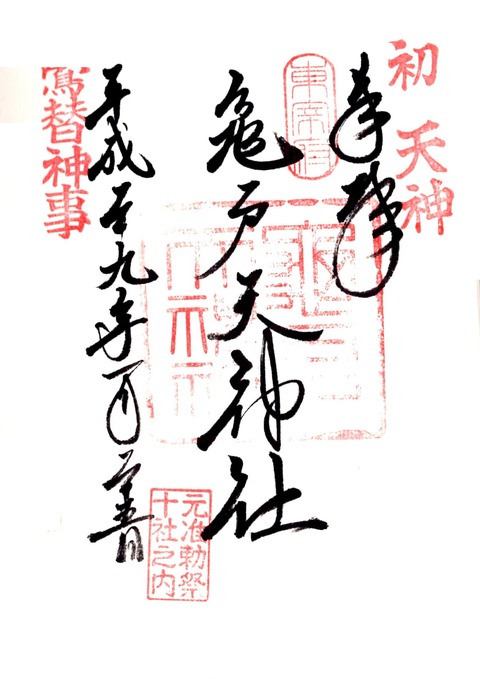 初天神
奉拝
東宰府
亀戸天神社
元准勅祭
十社之内
平成廿九年一月廿五日
鷽替神事